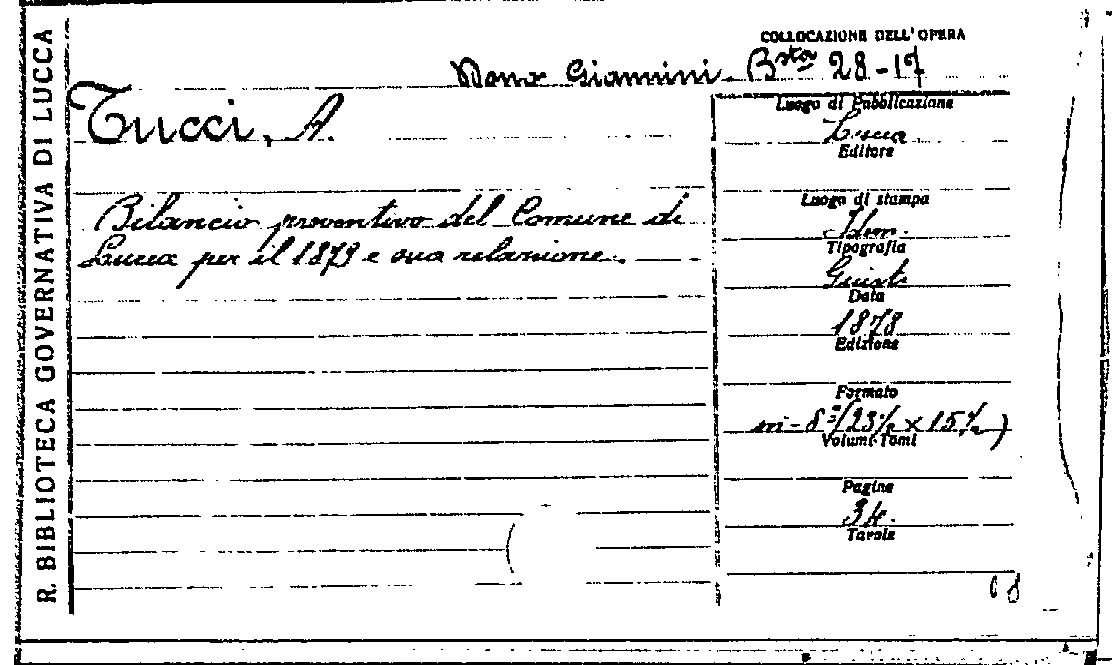 R. BIBLIOTECA GOVERNATIVA DI LUCCA
COLLOCAZIONE DELL'OPERA
Dono Giannini. Bsta 28-17
Tucci, A.
Bilancio preventivo del Comune di
Lucca per il 1879 e sua relazione.
Luogo di Pubblicazione
Lucca
Editore
Luogo di stampa
Idem.
Tipografia
Giusti
Data
1878
Edizione
Formato
in-8º (23½ × 15½)
Volumi-Tomi
Pagine
34.
Tavole